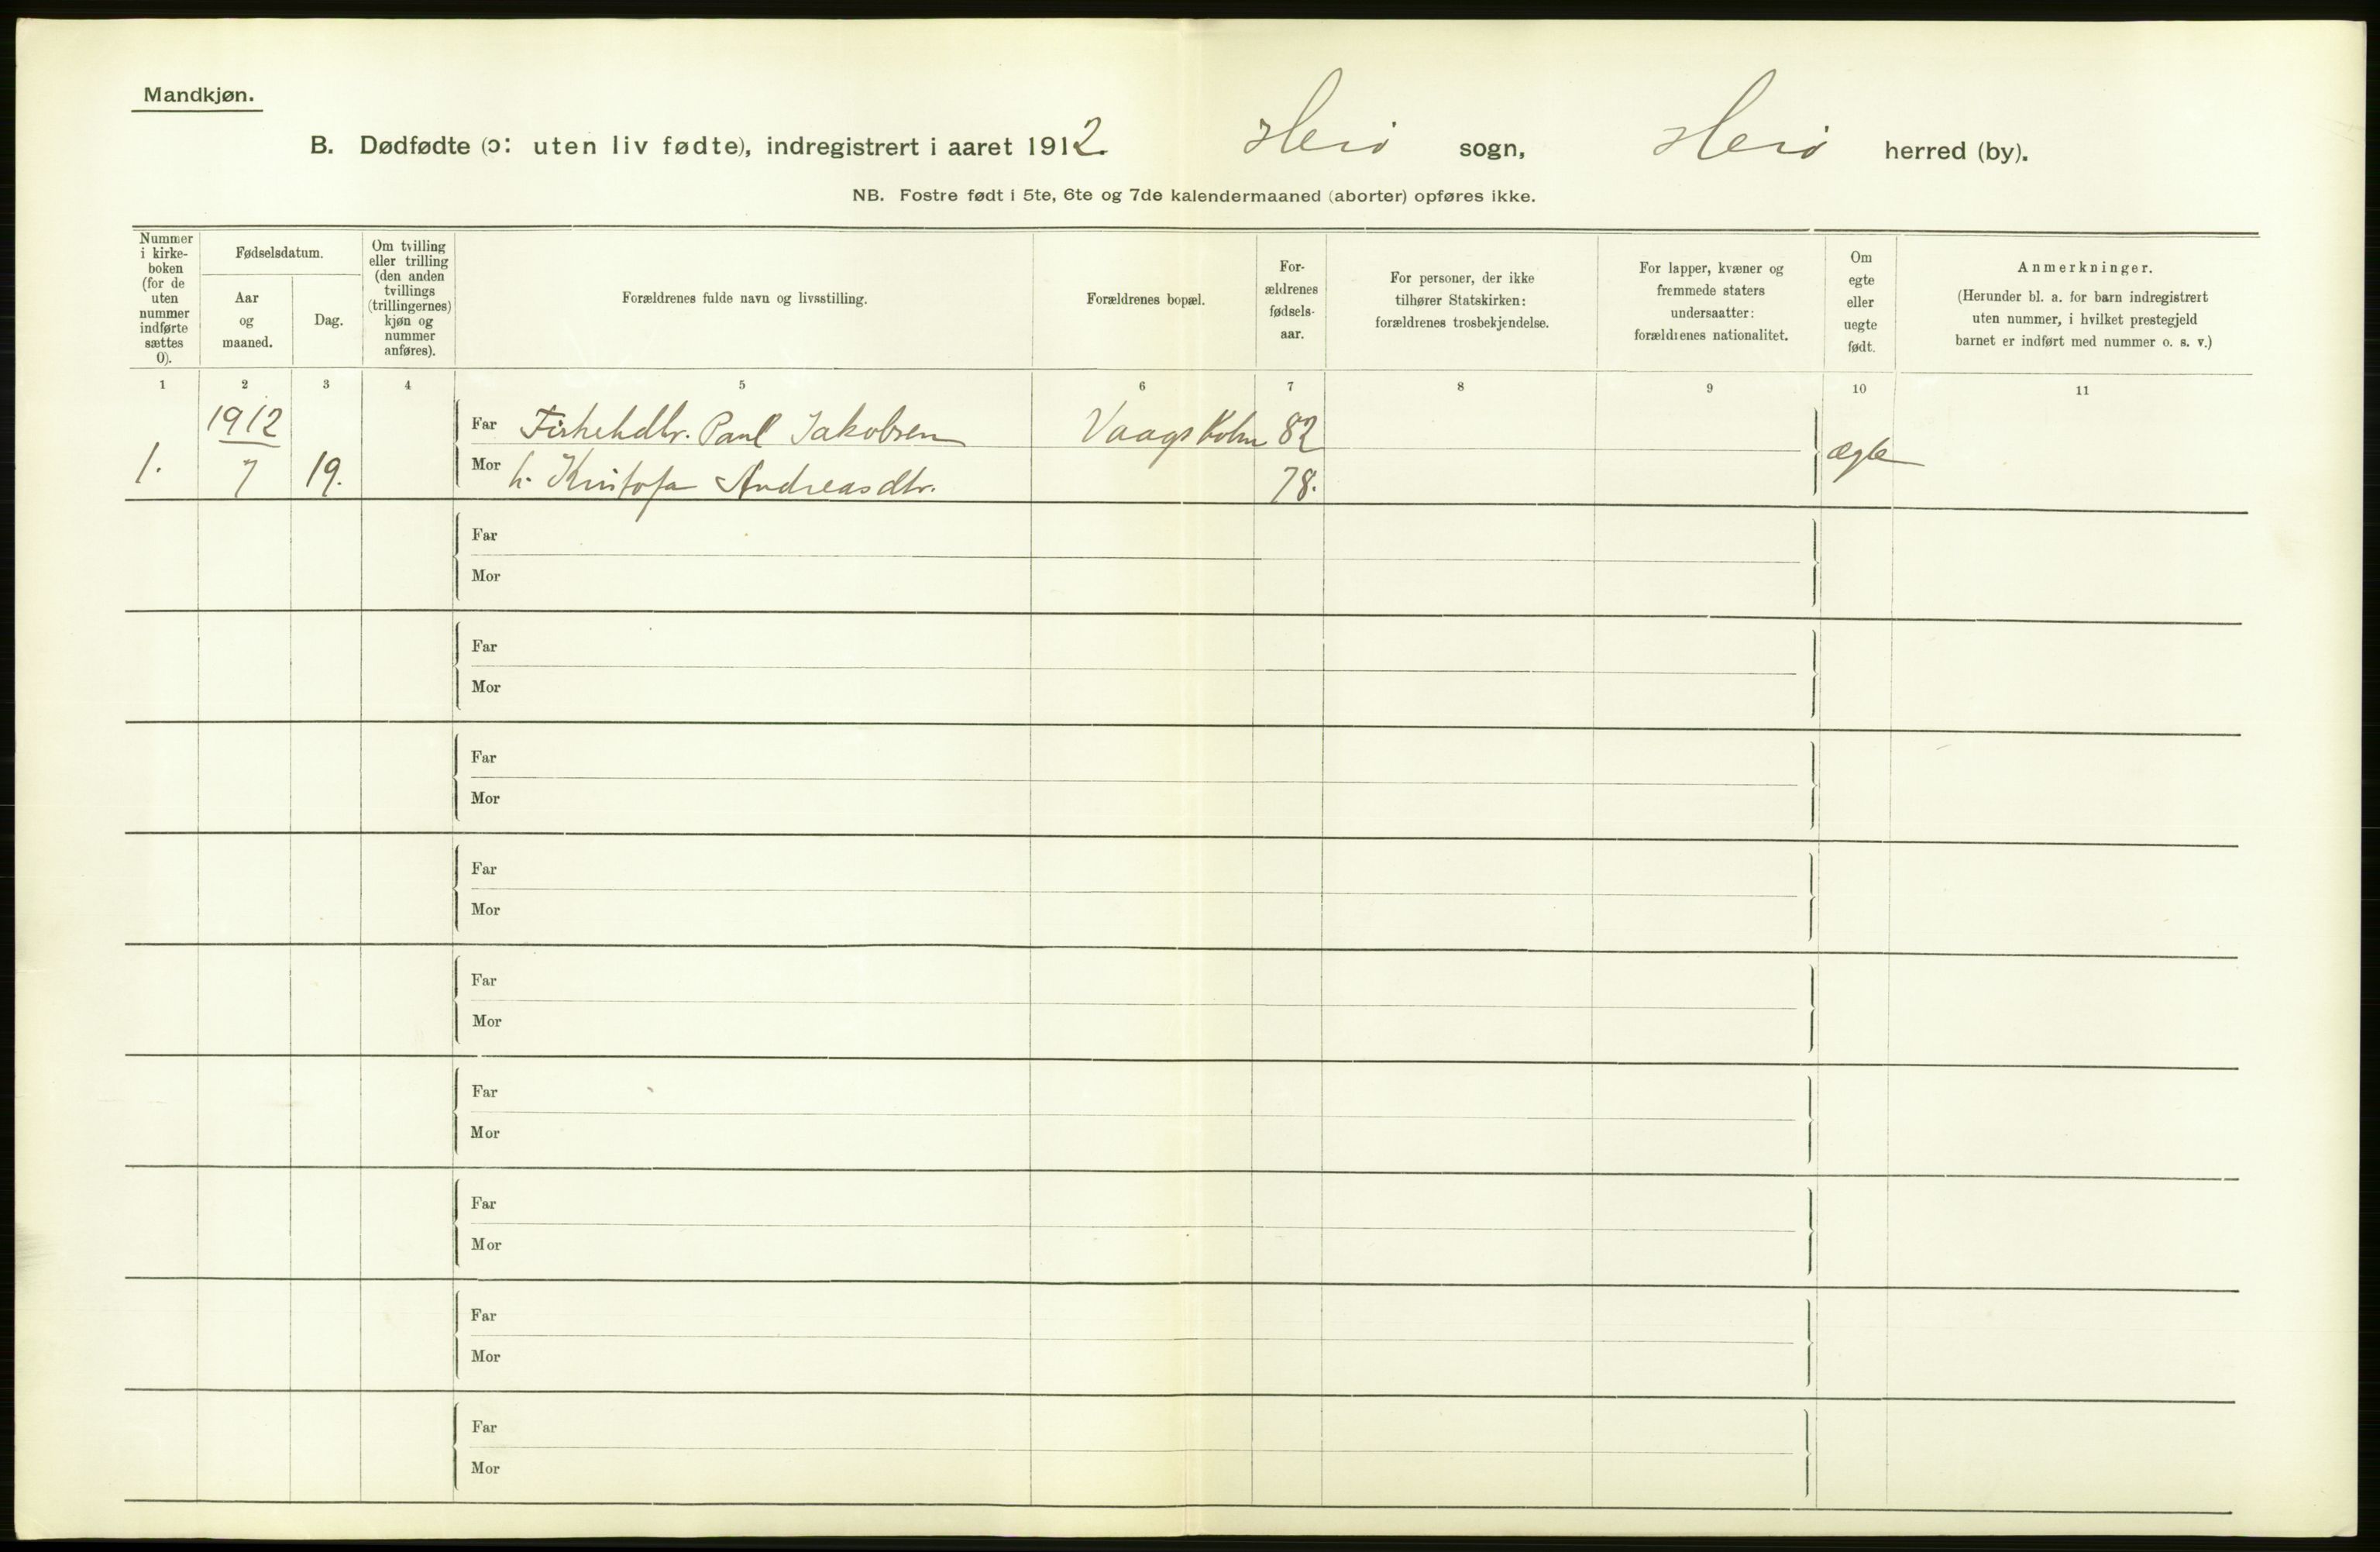 Mandkjøn.
B. Dødfødte (ɔ: uten liv fødte), indregistrert i aaret 1912 Herø sogn, Herø herred (by).
NB. Fostre født i 5te, 6te og 7de kalendermaaned (aborter) opføres ikke.
Nummer
i kirke-
boken
(for de
uten
nummer
indførte
sættes
0).
Fødselsdatum.
Aar
og
maaned.
Dag.
Om tvilling
eller trilling
(den anden
tvillings
(trillingernes)
kjøn og
nummer
anføres).
Forældrenes fulde navn og livsstilling.
Forældrenes bopæl.
For-
ældrenes
fødsels-
aar.
For personer, der ikke
tilhører Statskirken:
forældrenes trosbekjendelse.
For lapper, kvæner og
fremmede staters
undersaatter:
forældrenes nationalitet.
Om
egte
eller
uegte
født.
Anmerkninger.
(Herunder bl. a. for barn indregistrert
uten nummer, i hvilket prestegjeld
barnet er indført med nummer o. s. v.)
1 2 3 4 5 6 7 8 9 10 11
1912
Far Fiskehdlr. Paul Jakobsen Vaagsholm 82
1. 7 19. ægte
Mor h. Kristofa Andreasdtr. 78.
Far
Mor
Far
Mor
Far
Mor
Far
Mor
Far
Mor
Far
Mor
Far
Mor
Far
Mor
Far
Mor